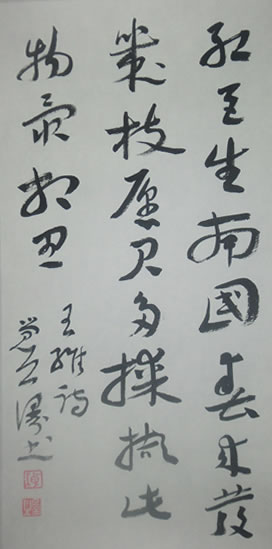 红豆生南國春来發
幾枝愿君多採撷此
物最相思
王维诗